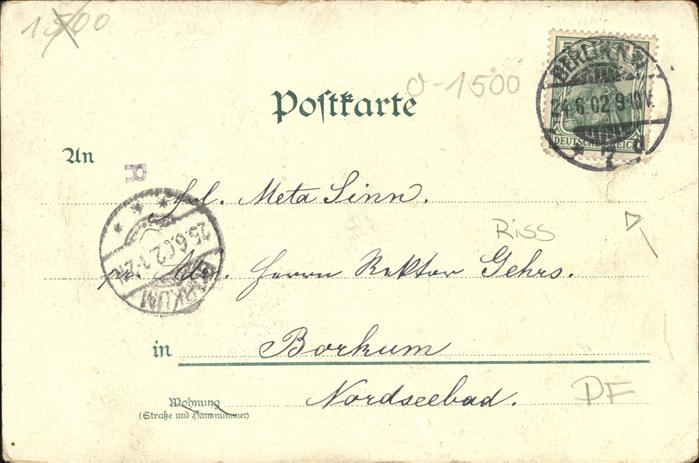 1500
5
BERLIN
24.6.02 9-10V.
DEUTSCHES REICH
0-1500
Postkarte
An
R
Frl. Meta Sinn.
25.6.02
BORKUM
Riss
pr. Adr. Herrn Rektor Gehrs.
in Borkum
Nordseebad.
Wohnung
(Straße und Hausnummer)
DF